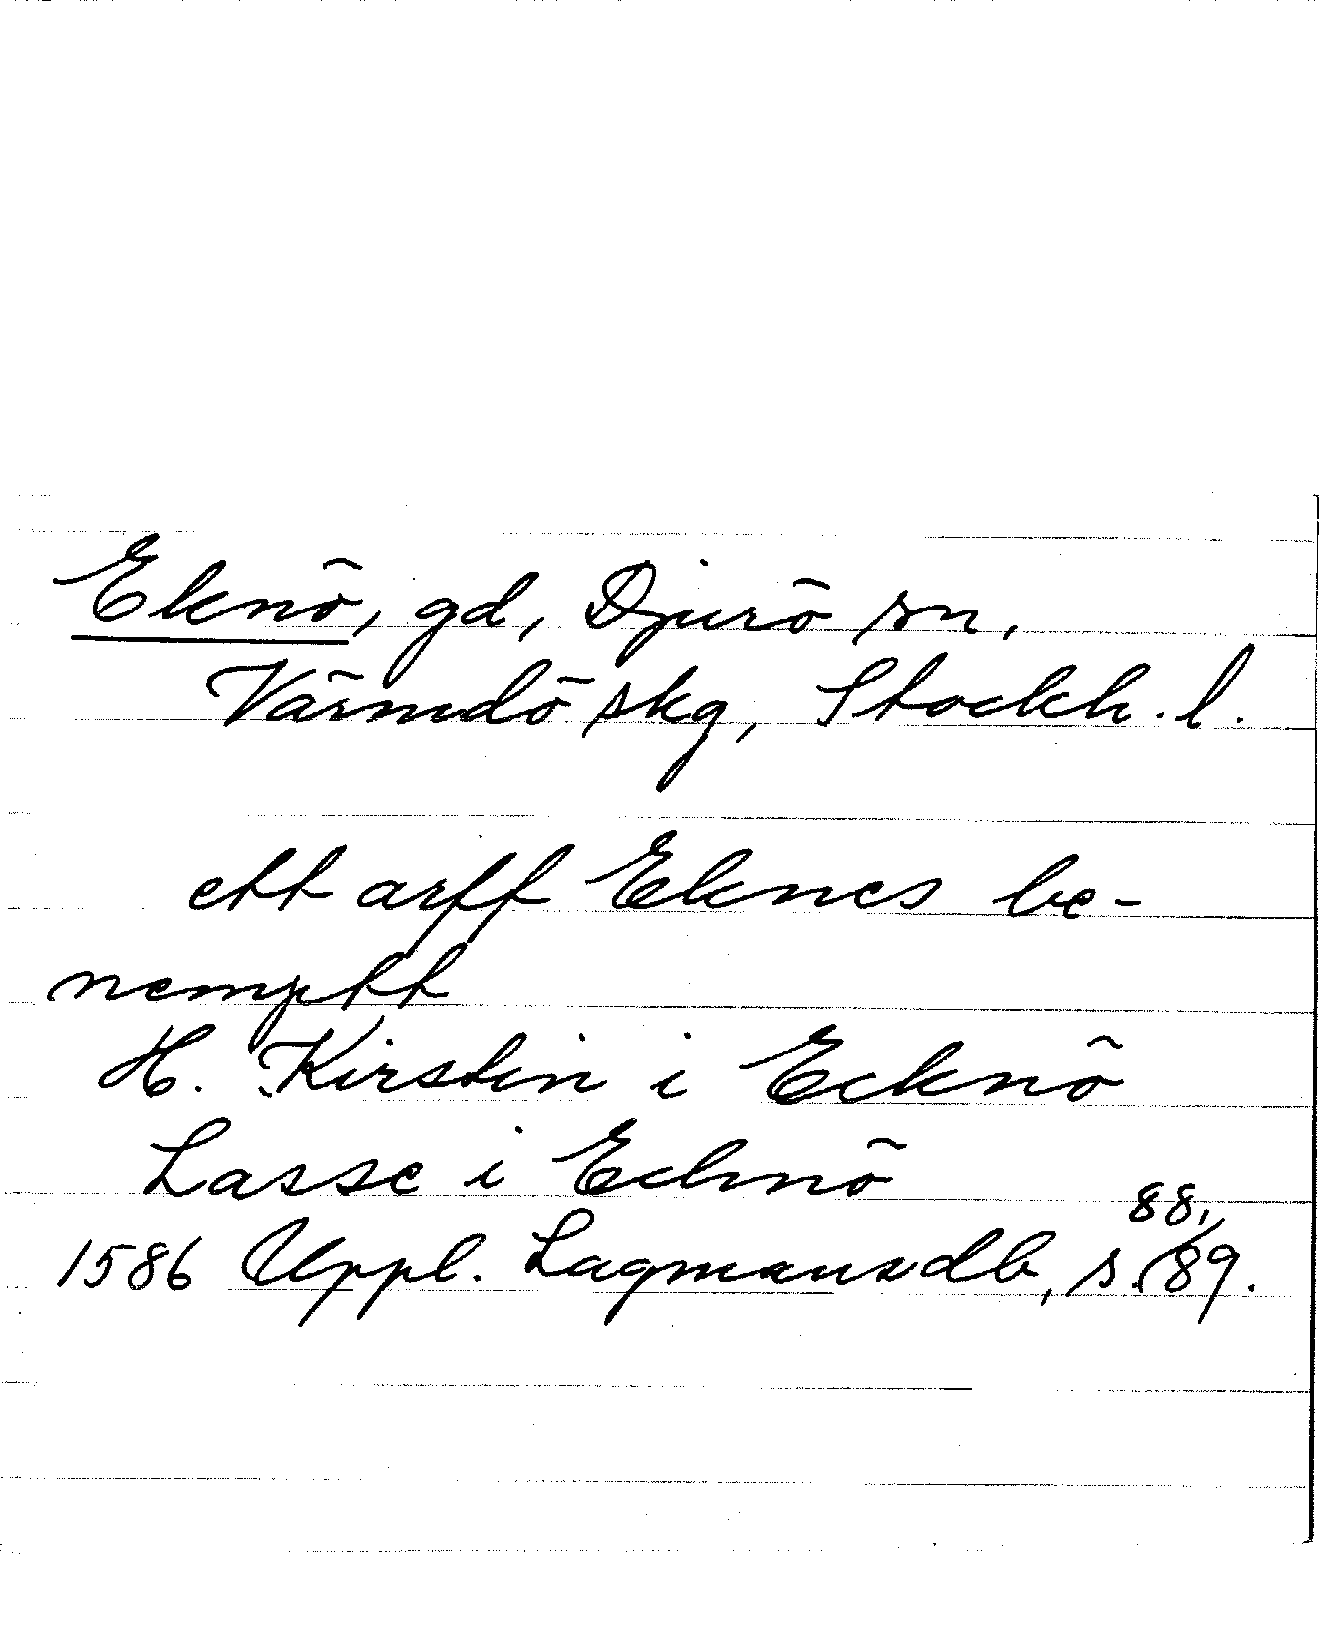 Eknö, gd, Djurö sn,
Värmdö skg, Stockh. l.
ett arff Eknes be-
nemptt
H. Kirstin i Ecknö
Lasse i Echnö
1586 Uppl. Lagmansdb, s. 88, 89.